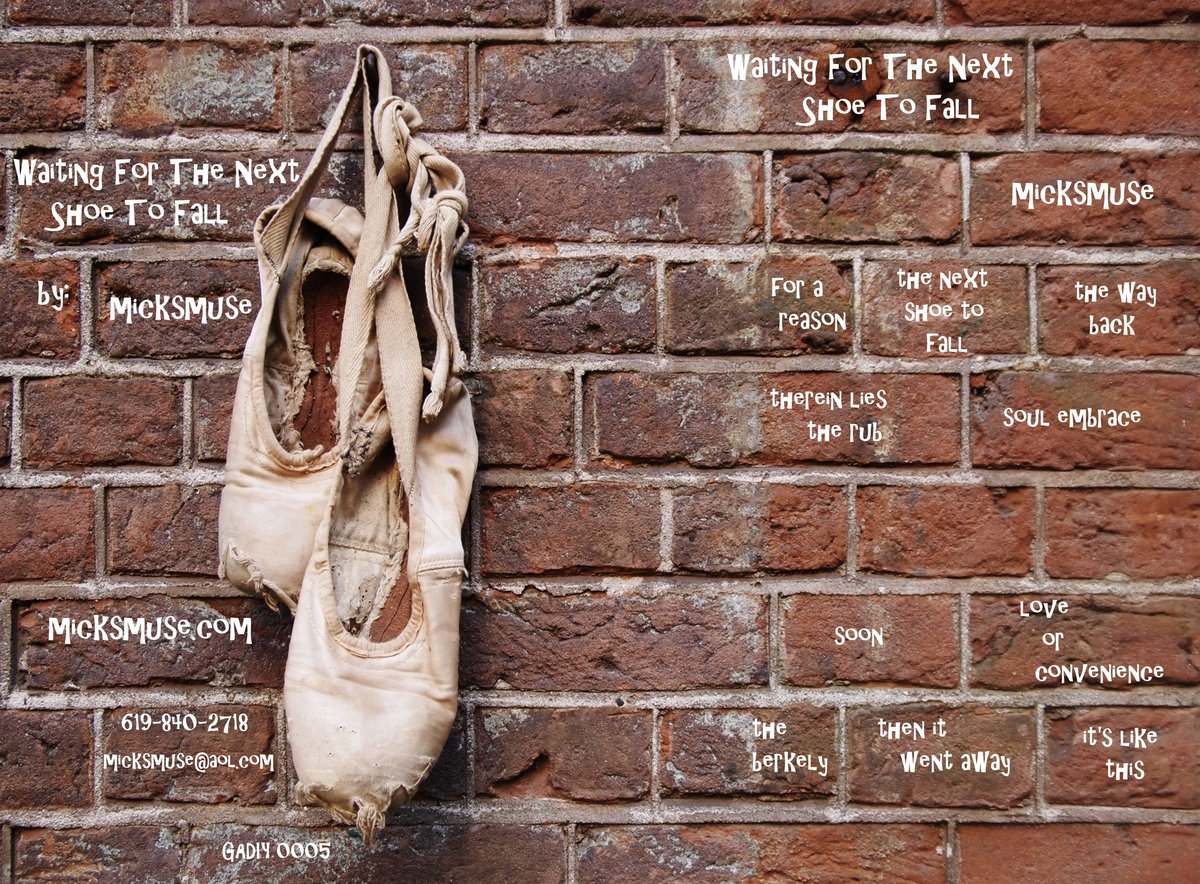 Waiting For The Next
Shoe To Fall
by:
Micksmuse
Micksmuse.com
619-840-2718
micksmuse@aol.com
GADIY 0005
Waiting For The Next
Shoe To Fall
Micksmuse
For a
reason
the next
shoe to
Fall
the way
back
therein lies
the rub
soul embrace
soon
Love
or
convenience
the
berkely
then it
went away
it's like
this